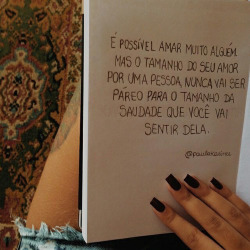 É POSSÍVEL AMAR MUITO ALGUÉM.
MAS O TAMANHO DO SEU AMOR
POR UMA PESSOA, NUNCA VAI SER
PÁREO PARA O TAMANHO DA
SAUDADE QUE VOCÊ VAI
SENTIR DELA.